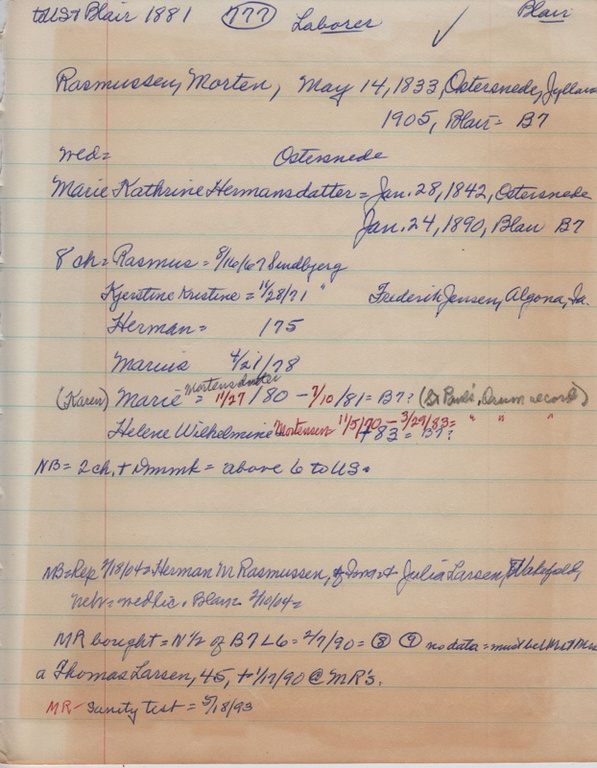 to US + Blair 1881 777 Laborer ✓ Blair
Rasmussen, Morten, May 14, 1833, Ostersnede, Jylland
1905, Blair = B7
wed = Ostersnede
Marie Kathrine Hermansdatter = Jan. 28, 1842, Ostersnede
Jan. 24, 1890, Blair B7
8 ch = Rasmus = 8/16/67 Sindbjerg
Kjerstine Kristine = 11/28/71 " Frederik Jensen, Algona, Ia.
Herman = /75
Marius 4/21/78
Mortensdatter
(Karen) Marie = 11/27/80 – 7/10/81 = B7? (St Paul's, record)
Helene Wilhelmine Mortensen 11/5/70 – 3/29/83 = " " "
+ 83 = B7?
NB = 2 ch. + Dnmk = above 6 to US.
NB = Rep 2/18/04 = Herman M Rasmussen, + Julia Larsen, Wakefield,
Nebr = wed lic. Blair 2/10/04 =
MR bought = N 1/2 of B7 L6 = 2/7/90 = 8 9 no data = must be
a Thomas Larsen, 45, + 1/17/90 @ MR's.
MR – Sanity test = 5/18/93